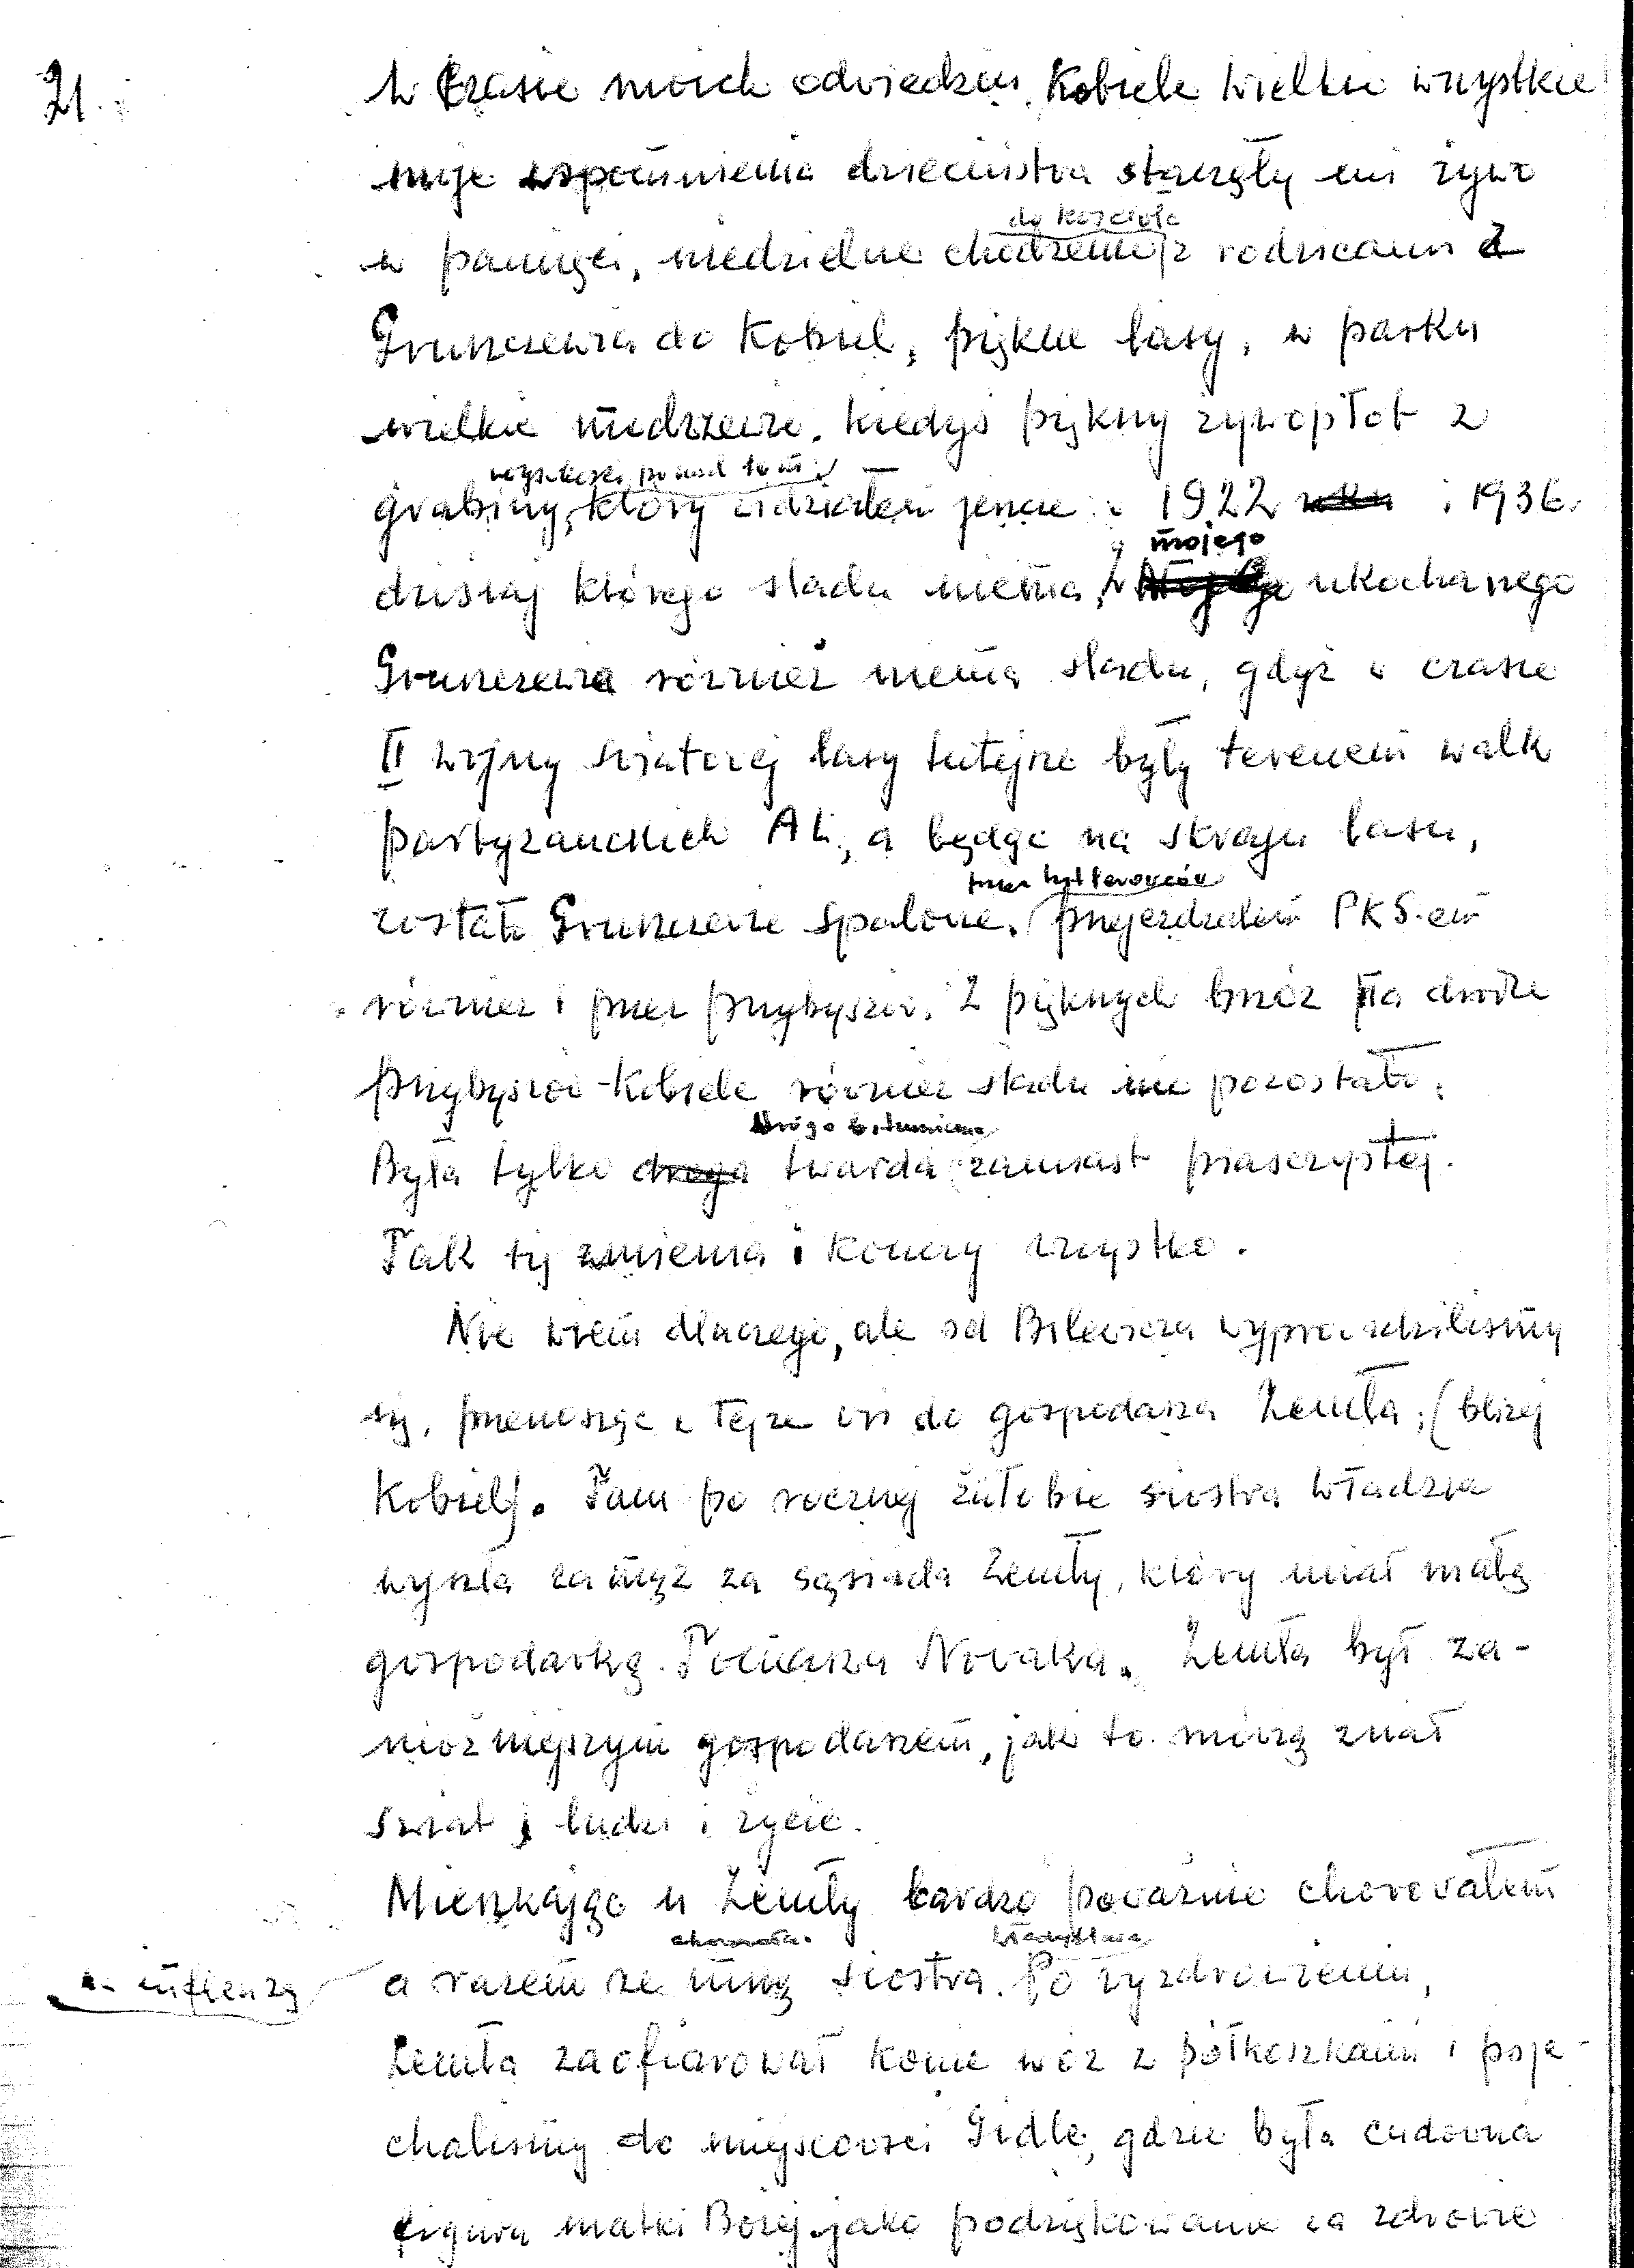 21.
W czasie moich odwiedzin Kobiele Wielkie wszystkie
moje wspomnienia dzieciństwa stanęły mi żywo
do kościoła
w pamięci, niedzielne chodzenie z rodzicami z
do Kobiel, piękne lasy, w parku
wielkie modrzewie. Kiedyś piękny żywopłot z
wysokości ponad
grabiny, który widziałem jeszcze w 1922 roku i 1936.
mojego
dzisiaj którego śladu niema, z ukochanego
również niema śladu, gdyż w czasie
II wojny światowej lasy tutejsze były terenem walk
partyzanckich AL, a będąc na skraju lasu,
przez hitlerowców
zostało spalone. Przejeżdżałem PKS-em
również i przez Przybyszów. Z pięknych brzóz na drodze
Przybyszów-Kobiele również śladu nie pozostało.
droga bitumiczna
Była tylko droga twarda zamiast piaszczystej.
Tak się zmienia i kończy wszystko.
Nie wiem dlaczego, ale od wyprowadziliśmy
się, przenosząc w tejże wsi do gospodarza Zemła, (bliżej
Kobiel). Tam po rocznej żałobie siostra Władzia
wyszła za mąż za sąsiada Zemły, który miał małą
gospodarkę. Tomasza Nowaka. Zemła był za-
możniejszym gospodarzem, jak to mówią znał
świat i ludzi i życie.
Mieszkając u Zemły bardzo poważnie chorowałem
chorowała. Władysława
na influenzę
a razem ze mną siostra. Po wyzdrowieniu,
Zemła zaofiarował konie wóz z półkoszkami i poje-
chaliśmy do miejscowości Gidle, gdzie była cudowna
figura matki Bożej jako podziękowanie za zdrowie